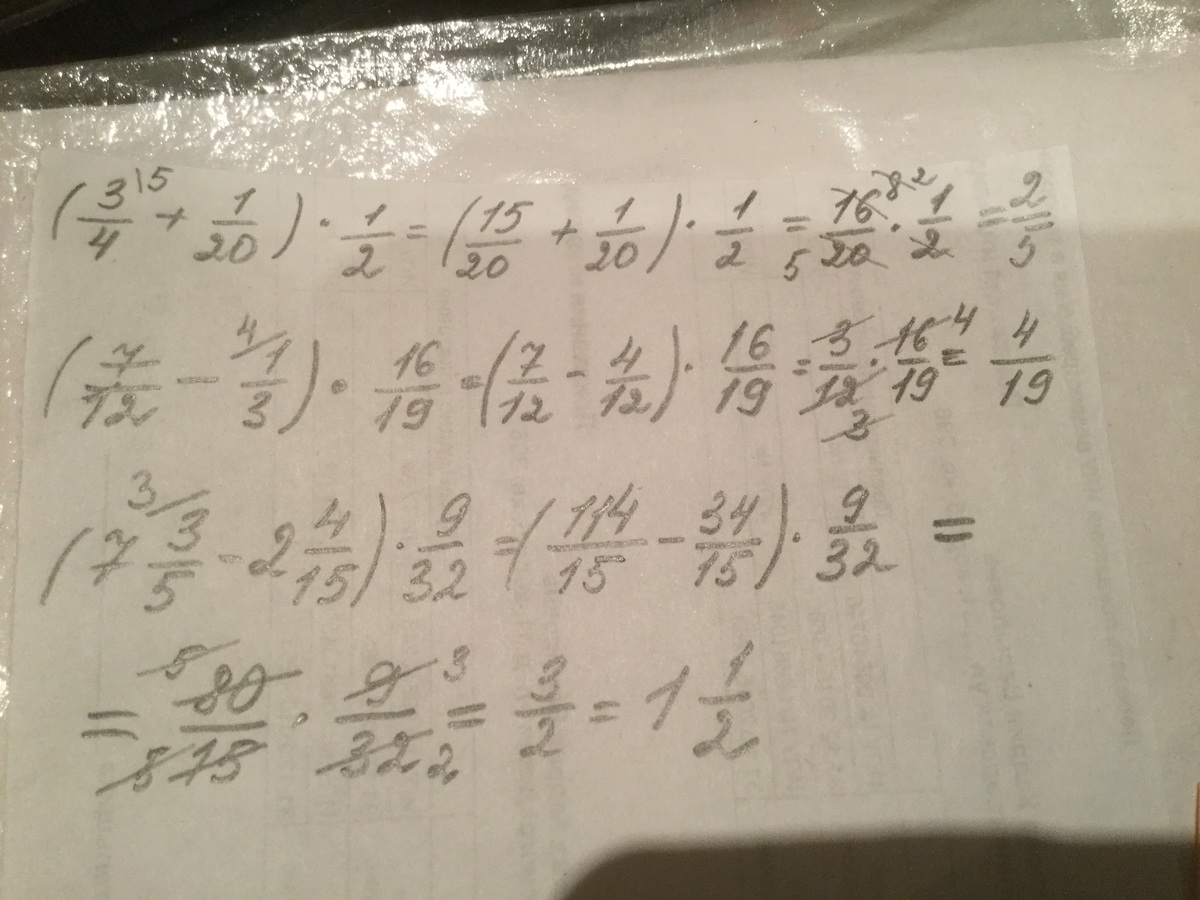 (3/4 \5 + 1/20) · 1/2 = (15/20 + 1/20) · 1/2 = 16/20 8 2 5 · 1/2 = 2/5
(7/12 - 4/ 1/3) · 16/19 = (7/12 - 4/12) · 16/19 = 3/12 3 · 16/19 4 = 4/19
(7 3/ 3/5 - 2 4/15) · 9/32 = (114/15 - 34/15) · 9/32 =
= 5 80/15 5 · 9/32 3 2 = 3/2 = 1 1/2